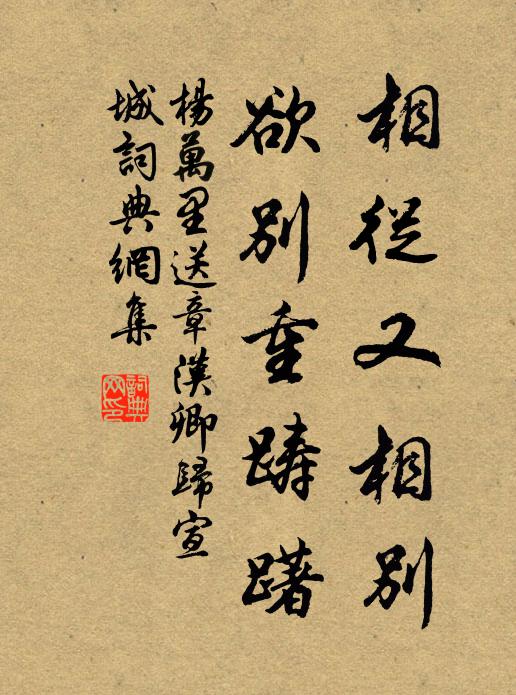 相從又相別
欲別重踌躇
楊萬里送章漢卿歸宣
城詞典網集
詞典網印